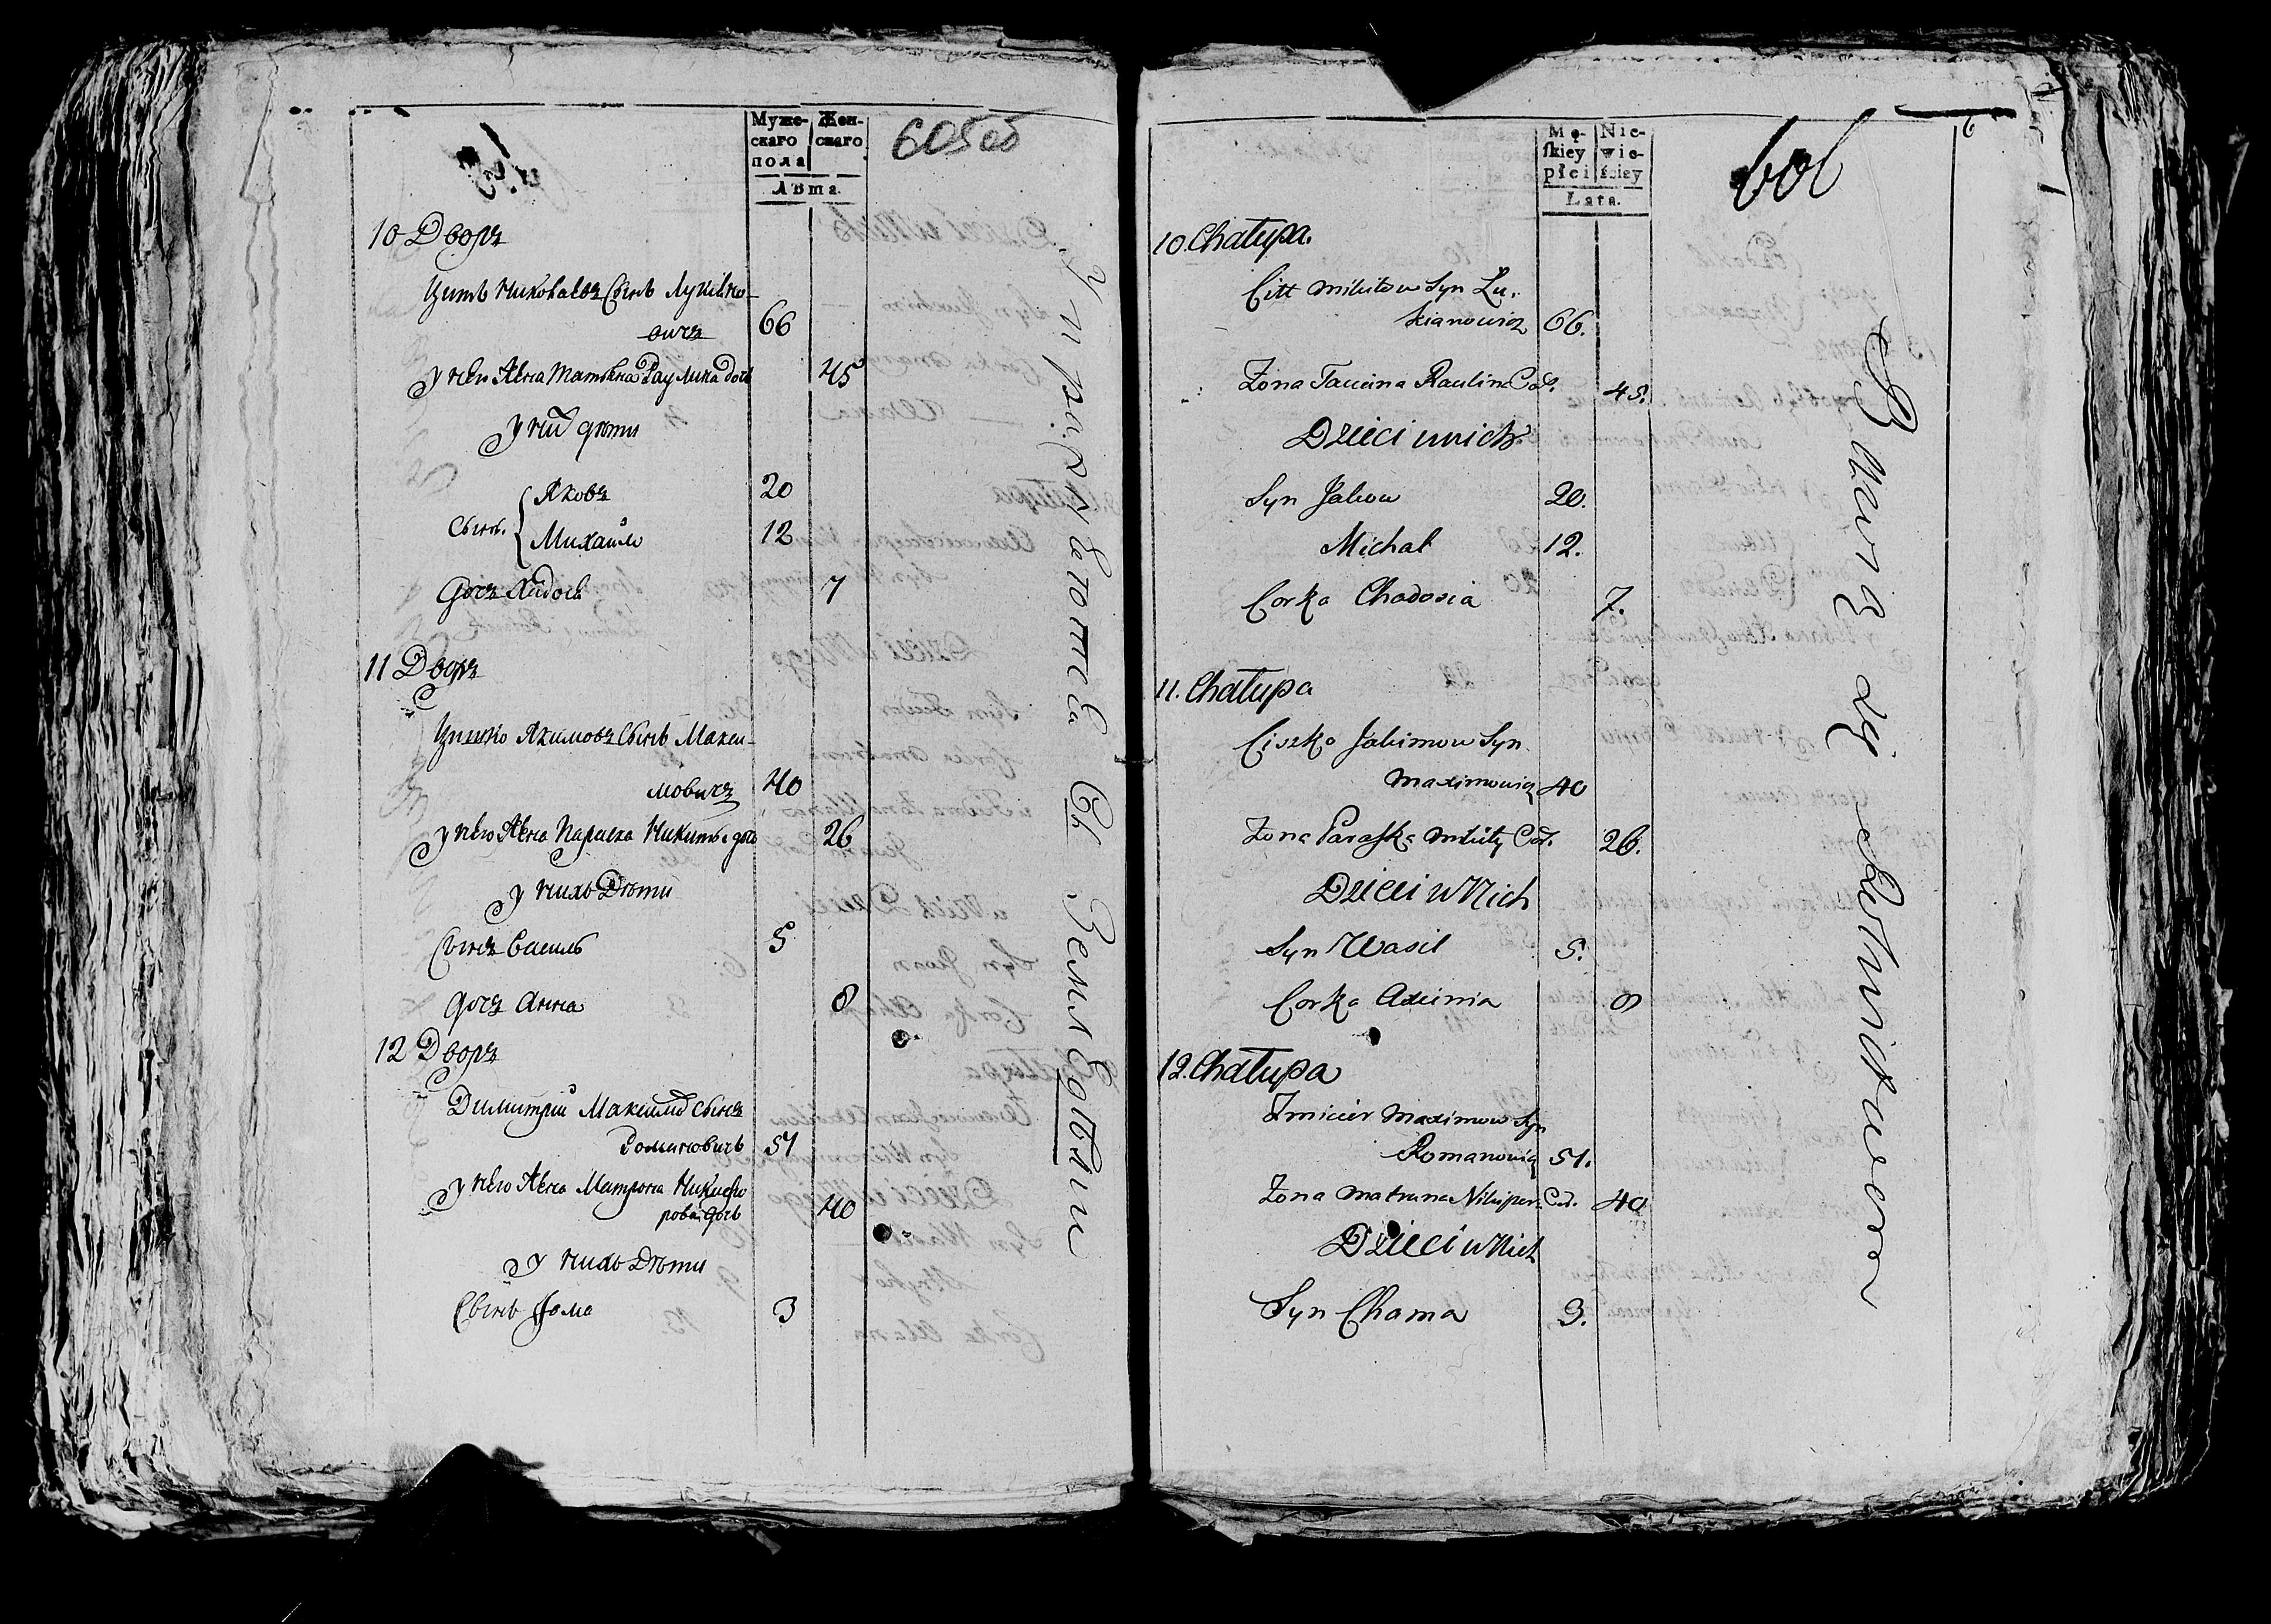 Муже-
скаго
пола
Жен-
скаго
Лѣта.
605 об
10 Дворъ
Цитъ Сынъ
овичъ 66
у него Жена Татьяна дочь 45
у них дѣти
Яковъ 20
Сынъ.
Михайло 12
Дочъ Хадось 7
11 Дворъ
Цишко Якимовъ Сынъ Макси-
мовичъ 40
у него Жена Параска Никиты дочь 26
у нихъ Дѣти
Сынъ Василь 5
дочъ Анна 8
12 Дворъ
Димитрій Максимов Сынъ
Романовичъ 51
у него Жена Матрона Никифо
рова дочь 40
у нихъ Дѣти
Сынъ Фома 3
Mę-
skiey
płci
Nie-
wie-
ściey
Lata.
606
6
10. Chałupa.
Citt Syn Łu-
kianowicz 66.
Zona Tacciana Cor. 45.
Dzieci u nich
Syn Jakow 20.
Michał 12.
Corka Chadosia 7.
11. Chałupa
Ciszko Jakimow Syn
Maximowicz 40
Zona Paraska Mikity Cor. 26.
Dzieci u Nich
Syn Wasil 5.
Corka Axinia 8
12. Chałupa
Zmicier Maximow Syn
Romanowicz 51.
Zona Matruna Cor. 40
Dzieci u Nich
Syn Chama 3.